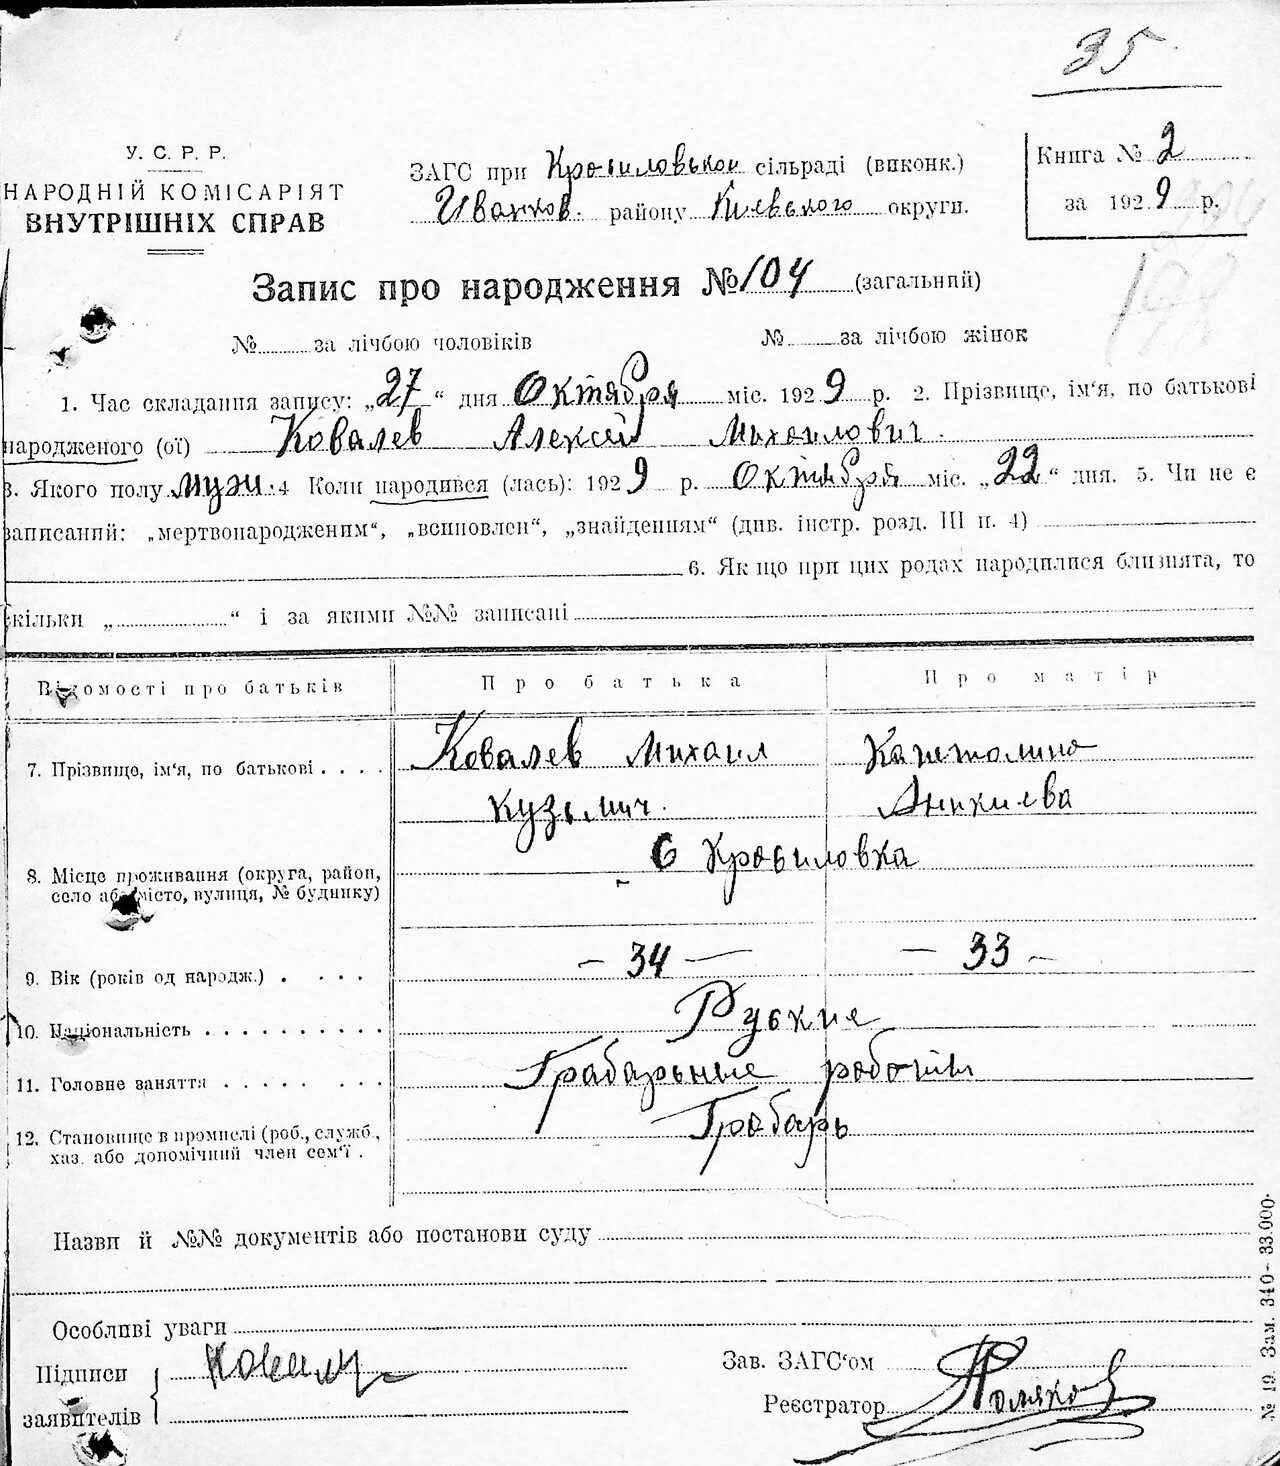 35
У. С. Р. Р.
НАРОДНІЙ КОМІСАРІЯТ
ВНУТРІШНІХ СПРАВ
ЗАГС при Кропиловькой сільраді (виконк.)
Иванков. району Киевького округи.
Книга № 2
за 1929 р.
Запис про народження № 104 (загальний)
№ за лічбою чоловіків № за лічбою жінок
1. Час складання запису: „27“ дня Октября міс. 1929 р. 2. Прізвище, ім‘я, по батькові
народженого (ої) Ковалев Алексей Михаилович.
3. Якого полу муж. 4 Коли народився (лась): 1929 р. Октября міс. „22“ дня. 5. Чи не є
записаний: „мертвонародженим“, „всиновлен“, „знайденням“ (див. інстр. розд. III п. 4)
6. Як що при цих родах народилися близнята, то
скільки „ “ і за якими №№ записані
Відомості про батьків Про батька Про матір
7. Прізвище, ім‘я, по батькові . . . . Ковалев Михаил Капетолина
Кузьмич.
8. Місце проживання (округа, район, С Кропиловка
село або місто, вулиця, № будинку)
9. Вік (років од народж.) . . . . — 34 — — 33 —
10. Національність . . . . . . . . . . Руские
11. Головне заняття . . . . . . . . Грабарьные работи
12. Становище в промислі (роб., служб., Грабарь
хаз. або допомічний член сем‘ї .
Назви й №№ документів або постанови суду
Особливі уваги
Підписи
заявителів
Зав. ЗАГС‘ом
Реєстратор Поляков
№ 19. Зам. 340—33.000.